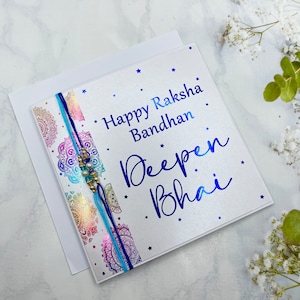 Happy Raksha
Bandhan
Deepen
Bhai